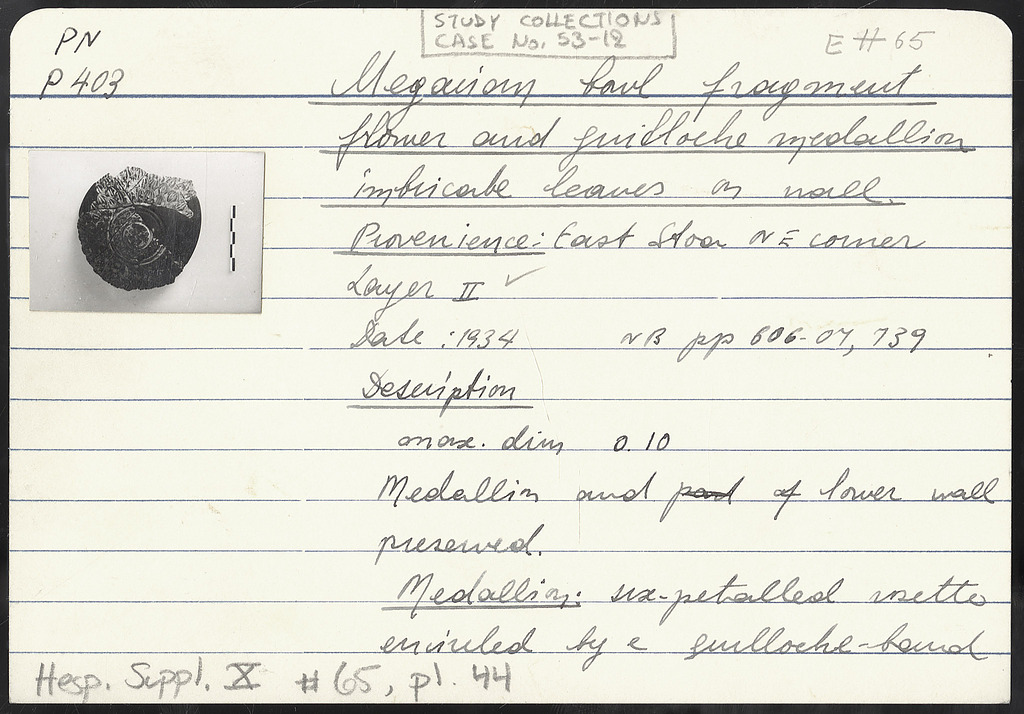 STUDY COLLECTIONS
CASE No. 53-12
E # 65
PN
P 403
Megarian bowl fragment
flower and guilloche medallion
imbricate leaves on wall.
Provenience: East Stoa NE corner
Layer II ✓
Date : 1934 NB pp 606-07, 739
Description
max. dim 0.10
Medallin and part of lower wall
preserved.
Medallion: six-petalled rosette
encircled by a guilloche-band
Hesp. Suppl. X # 65, pl. 44